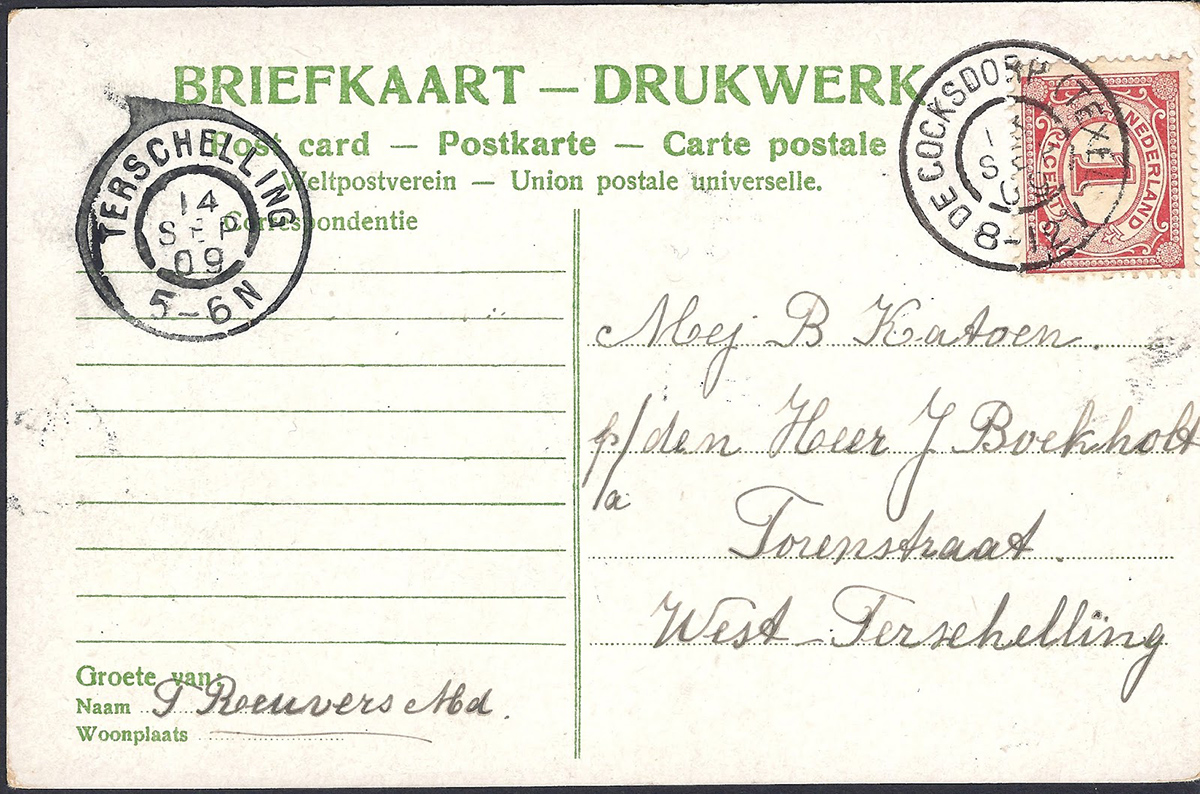 BRIEFKAART — DRUKWERK
Post card — Postkarte — Carte postale
Weltpostverein — Union postale universelle.
Correspondentie
TERSCHELLING
14
SEP
09
5-6N
DE COCKSDORP (TEXEL)
8-12V
NEDERLAND
1
1 CENT 1
Mej B Katoen.
p/a den Heer J Boekholt
Torenstraat.
West-Terschelling
Groete van:
Naam T Reeuvers Md.
Woonplaats